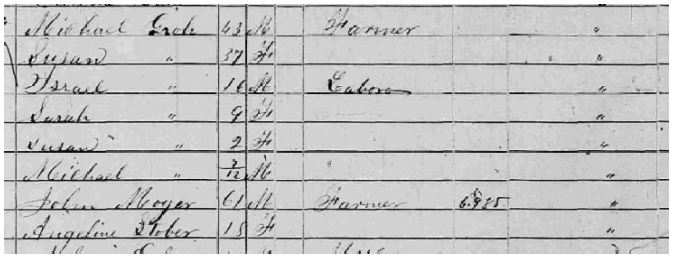 Michael Groh 43 M Farmer "
Susan " 37 F "
Israel " 16 M Labora "
Sarah " 9 F "
Susan " 2 F "
Michael " 7/12 M "
John Moyer 61 M Farmer "
Angeline Stober 18 F "